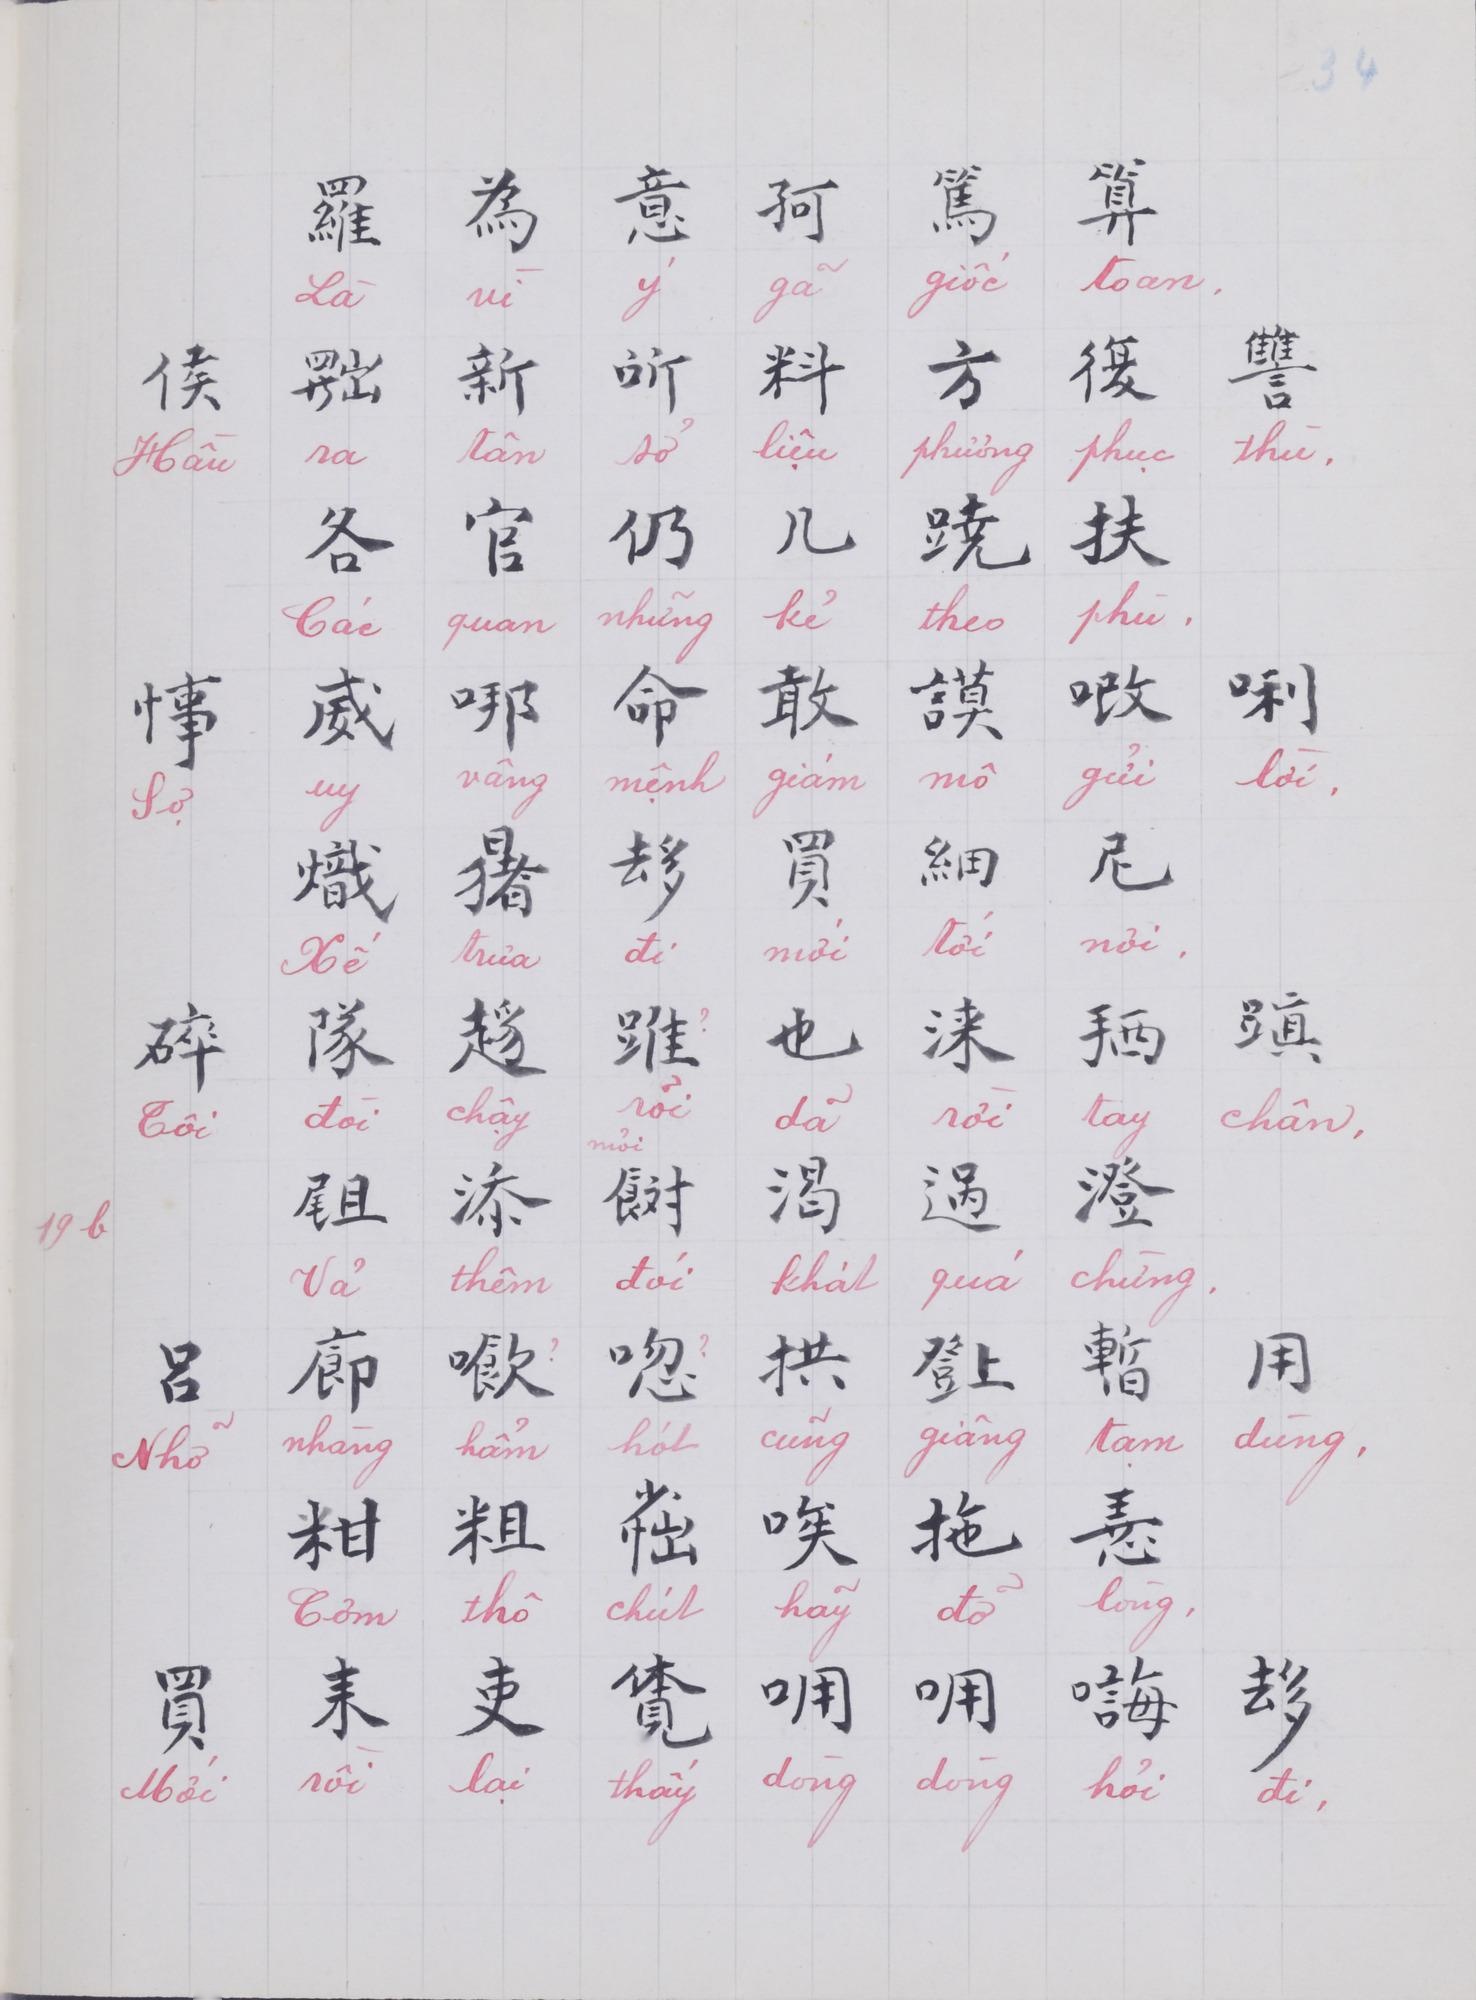 34
羅 為 意 哿 篤 算
Là vì ý gã giốc toan.
侯 𫥨 新 所 料 方 復 讐
Hầu ra tân sở liệu phương phục thù.
各 官 仍 几 蹺 扶
Các quan những kẻ theo phù.
威 命 敢 謨 唎
Sợ uy vâng mệnh giám mô gửi lời.
熾 買 細 尼
Xế trưa đi mới tới nơi.
碎 隊 也 淶 拪 蹎
Tôi đòi chậy rỏi ? dã rời tay chân.
mỏi
添 渴 過 澄
19 b
Vả thêm đói khát quá chừng.
呂 廊 拱 暫 用
Nhỡ nhàng hẩm ? hót ? cũng giâng tạm dùng.
粓 粗 唉 拖
Cơm thô chút hãy đỡ lòng.
買 耒 吏 覓 哊 哊 𠳨
Mới rồi lại thấy dong dong hỏi đi.